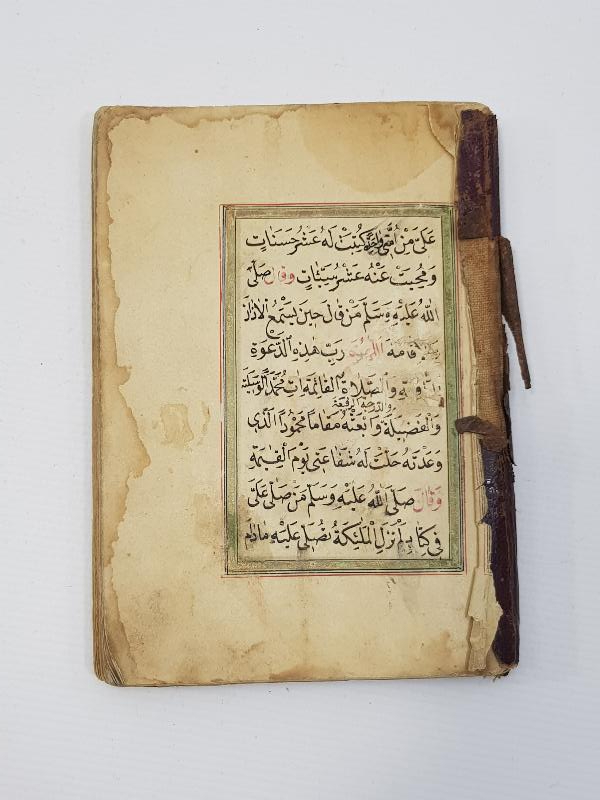 عَلَيَّ مِنْ اُمَّتِي وَاحِدَةً كُتِبَتْ لَهُ عَشْرُ حَسَنَاتٍ
وَمُحِيَتْ عَنْهُ عَشْرُ سَيِّئَاتٍ وَقَالَ صَلَّى
اللهُ عَلَيْهِ وَسَلَّمَ مَنْ قَالَ حِينَ يَسْمَعُ الْاَذَانَ
رَبَّ هٰذِهِ الدَّعْوَةِ
وَالصَّلَاةِ الْقَائِمَةِ اٰتِ مُحَمَّدًا الْوَسِيلَةَ
وَالدَّرَجَةَ الرَّفِيعَةَ
وَالْفَضِيلَةَ وَابْعَثْهُ مَقَامًا مَحْمُودًا الَّذِي
وَعَدْتَهُ حَلَّتْ لَهُ شَفَاعَتِي يَوْمَ الْقِيٰمَةِ
وَقَالَ صَلَّى اللهُ عَلَيْهِ وَسَلَّمَ مَنْ صَلَّى عَلَيَّ
فِي كِتَابٍ لَمْ تَزَلِ الْمَلٰئِكَةُ تُصَلِّي عَلَيْهِ مَادَامَ